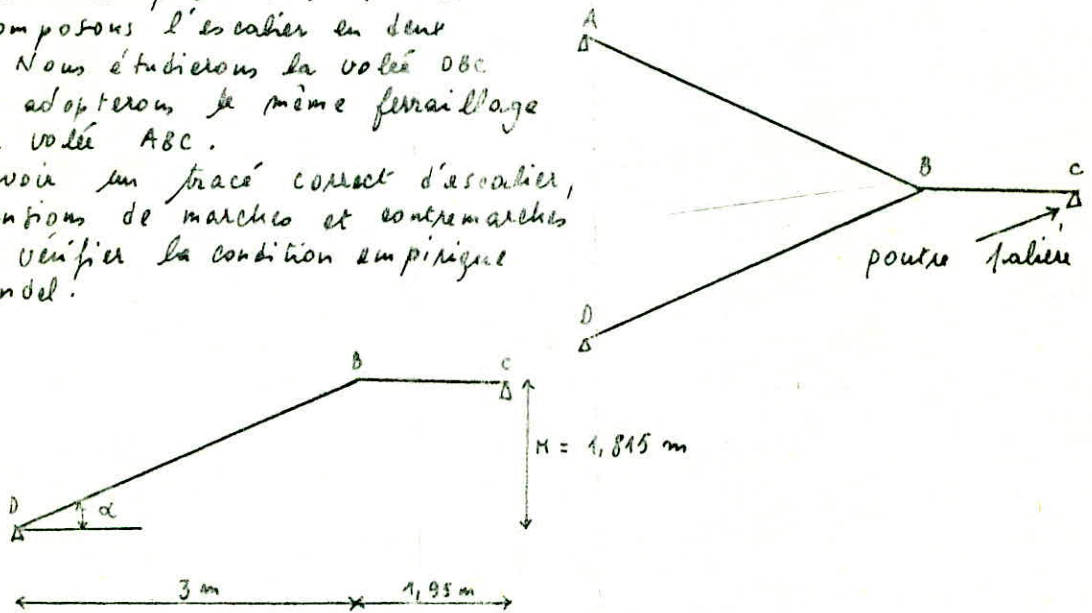 omposons l'escalier en deux
Nous étudierons la volée DBC
adopterons le même ferraillage
volée ABC.
voir un tracé correct d'escalier,
ensions de marches et contremarches
vérifier la condition empirique
ndel.
A
B
C
poutre palière
D
B
C
H = 1,815 m
D
α
3 m
1,95 m